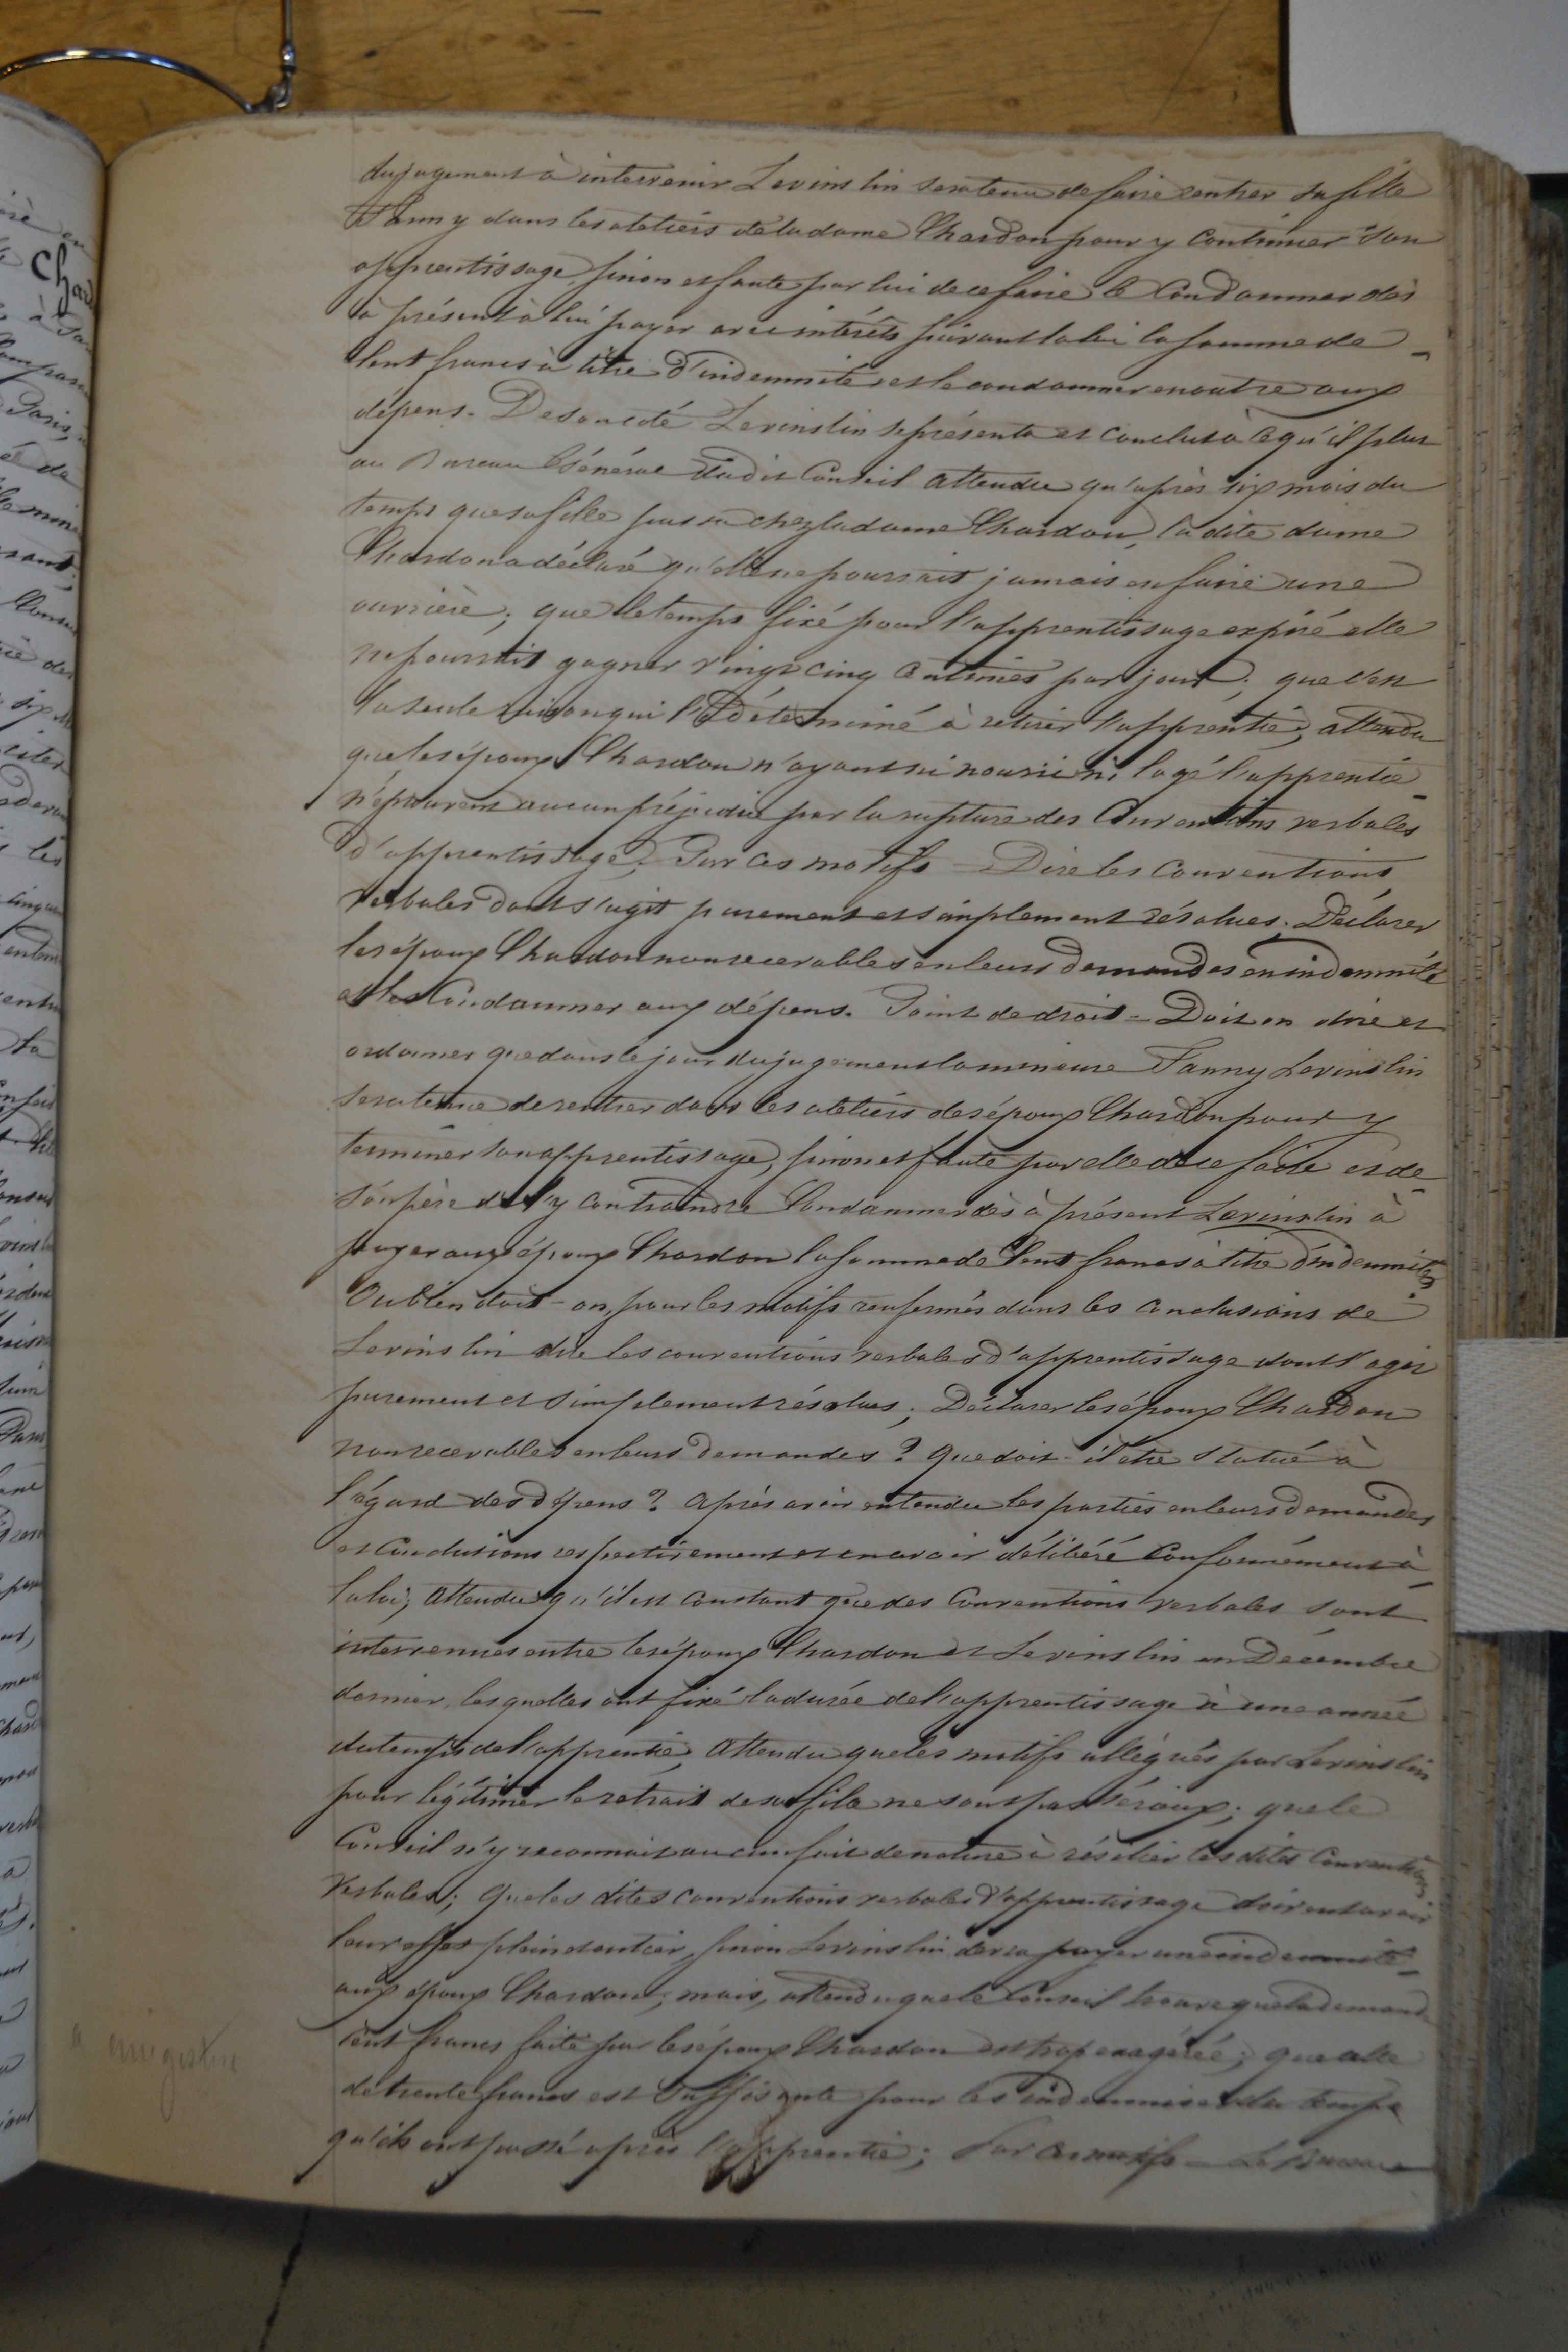 du jugement à intervenir Levinslin sera tenu de faire rentrer sa fille
Fanny dans les ateliers de la dame Chardon pour y continuer son
apprentissage, sinon et faute par lui de ce faire le Condamner dès
à présent à lui payer avec intérêts suivant la loi la somme de
Cent francs à titre d'indemnité et le condamner en outre aux
dépens. De son côté Levinslin se présenta et conclut à ce qu'il plut
au Bureau Général dudit Conseil attendu qu'après six mois du
temps que sa fille passa chez la dame Chardon, la dite dame
Chardon a déclaré qu'elle ne pourrait jamais en faire une
ouvrière; que le temps fixé pour l'apprentissage expiré elle
ne pourrait gagner vingt cinq centimes par jour; que c'est
la seule raison qui l'a déterminé à retirer l'apprentie; attendu
que les époux Chardon n'ayant ni nourri ni logé l'apprentie
n'éprouvent aucun préjudice par la rupture des Conventions verbales
d'apprentissage; Par ces motifs – Dire les conventions
verbales dont s'agit purement et simplement résolues. Déclarer
les époux Chardon non recevables en leurs demandes en indemnité
et les Condamner aux dépens. Point de droit – Doit-on dire et
ordonner que dans le jour du jugement la mineure Fanny Levinslin
sera tenue de rentrer dans les ateliers des époux Chardon pour y
terminer son apprentissage, sinon et faute par elle de ce faire et de
son père de l'y contraindre Condamner dès à présent Levinslin à
payer aux époux Chardon la somme de Cent francs à titre d'indemnité
Ou bien doit-on, pour les motifs renfermés dans les conclusions de
Levinslin dire les conventions verbales d'apprentissage dont s'agit
purement et simplement résolues; Déclarer les époux Chardon
non recevables en leurs demandes? Que doit-il être statué à
l'égard des dépens? Après avoir entendu les parties en leurs demandes
et Conclusions respectivement et en avoir délibéré Conformément à
la loi; attendu qu'il est constant que des Conventions verbales sont
intervenues entre les époux Chardon et Levinslin en Décembre
dernier, lesquelles ont fixé la durée de l'apprentissage à une année
du temps de l'apprentie; Attendu que les motifs allégués par Levinslin
pour légitimer le retrait de sa fille ne sont pas sérieux; que le
Conseil n'y reconnait aucun fait de nature à résilier les dites Conventions
Verbales; Que les dites conventions verbales d'apprentissage doivent avoir
leur effet plein et entier, sinon Levinslin devra payer une indemnité
aux époux Chardon; mais, attendu que le Conseil trouve que la demande
cent francs faite par les époux Chardon est trop exagérée; que celle
de trente francs est suffisante pour les indemniser du temps
qu'ils ont passé après l'apprentie; Par ces motifs – Le Bureau